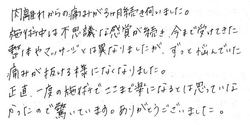 肉離れからの痛みが3ヶ月続き伺いました。
施術中は不思議な感覚が続き、今まで受けてきた
整体やマッサージとは異なりましたが、ずっと悩んでいた
痛みが抜ける様になくなりました。
正直、一度の施術でここまで楽になるとは思っていな
かったので驚いています。ありがとうございました。